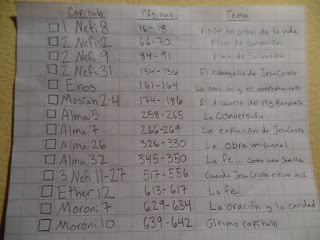 Capitulo Páginas Tema
1 Nefi 8 16-18 Visión del arbol de la vida
2 Nefi 2 66-70 Plan de Salvación
2 Nefi 9 84-91 Plan de Salvación
2 Nefi 31 134-136 El evangelio de Jesu Cristo
Enos 161-164 La oración y el arrepentimiento
Mosíah 2-4 174-186 El discurso del rey Benjamin
Alma 5 258-265 La Conversión
Alma 7 266-269 La expiación de JesuCristo
Alma 26 326-330 La obra misional
Alma 32 345-350 La fe... como una Semilla
3 Nefi 11-27 517-556 Cuando JesuCristo estuvo acá
Ether 12 613-617 La fe
Moroni 7 629-634 La oración y la caridad
Moroni 10 639-642 Último capitulo